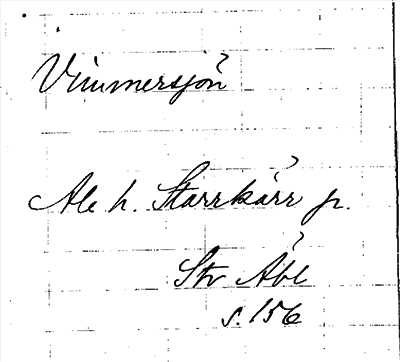 Vimmersjön
Ale h. Starrkärr p.
Str Äbl
s. 156